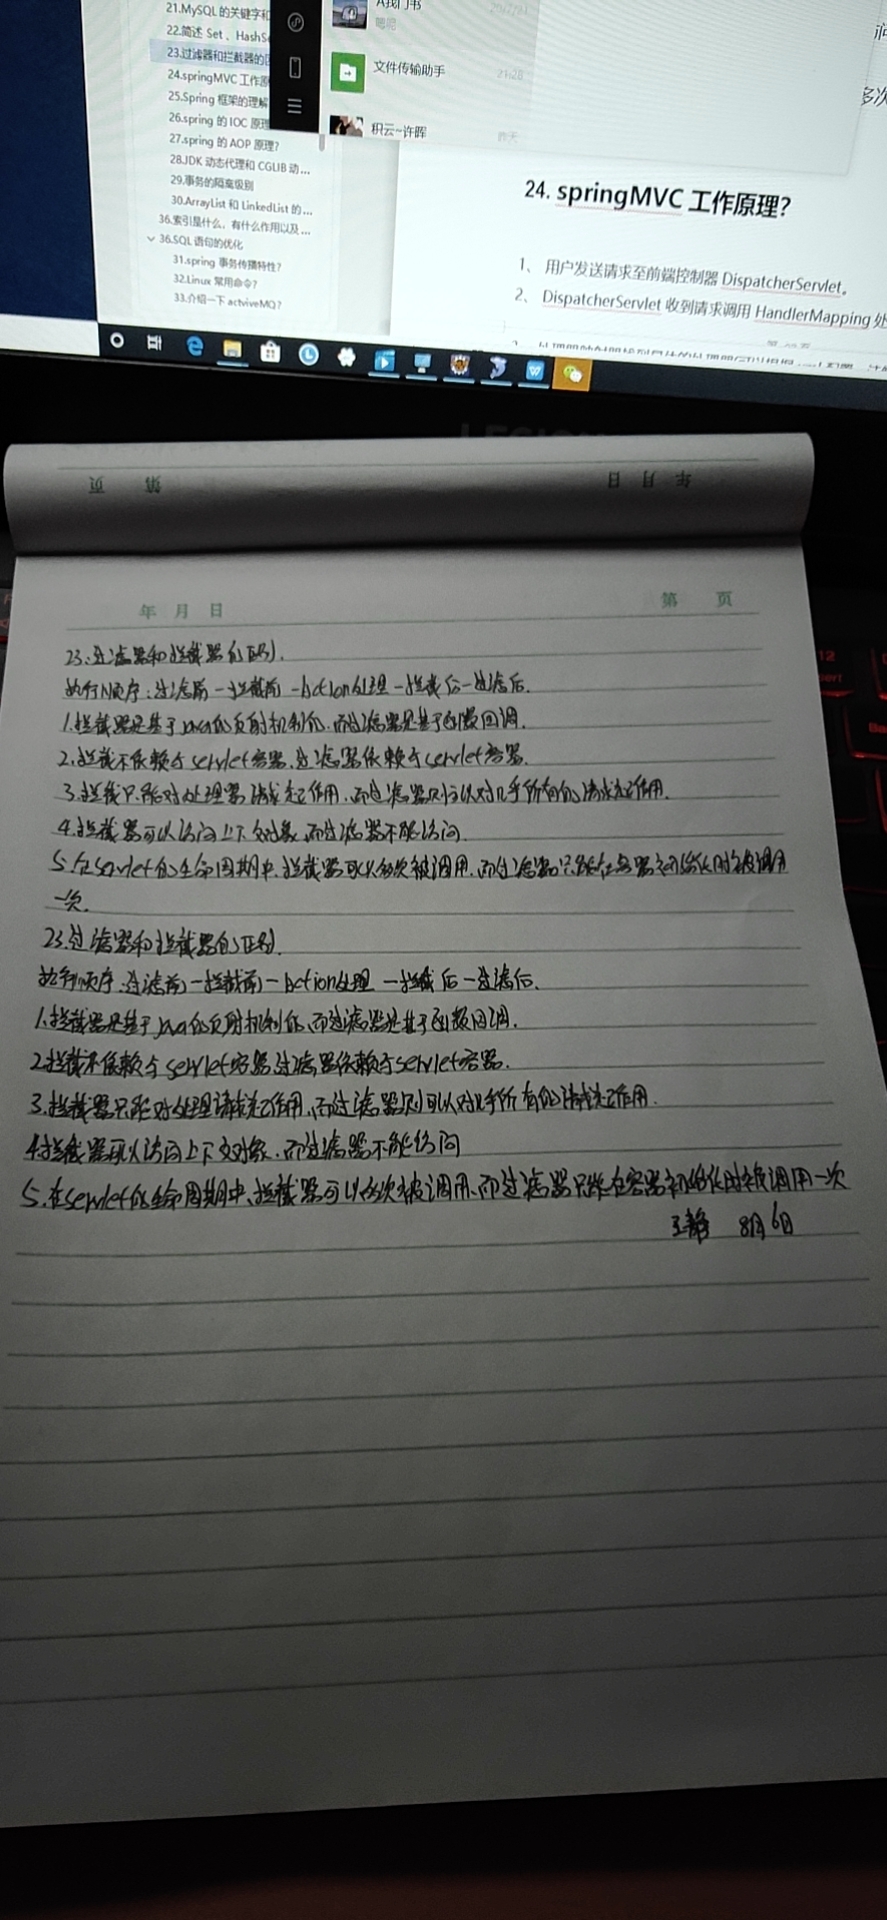 21.MySQL的关键字和
22.简述 Set 、HashS
23.过滤器和拦截器的区
24.springMVC 工作原
25.Spring 框架的理解
26.spring 的 IOC 原理
27.spring 的 AOP 原理?
28.JDK 动态代理和 CGLIB 动...
29.事务的隔离级别
30.ArrayList 和 LinkedList 的...
36.索引是什么，有什么作用以及...
36.SQL 语句的优化
31.spring 事务传播特性?
32.Linux 常用命令?
33.介绍一下 actviveMQ?
A我门书
嗯呢
文件传输助手
21:28
积云~许晖
昨天
多次
24. springMVC 工作原理?
1、 用户发送请求至前端控制器 DispatcherServlet。
2、 DispatcherServlet 收到请求调用 HandlerMapping 处
LEGION
第 页
年 月 日
年 月 日
第 页
23.过滤器和拦截器的区别.
执行顺序:过滤前-拦截前-Action处理-拦截后-过滤后.
1.拦截器是基于java的反射机制的,而过滤器是基于函数回调.
2.拦截不依赖与servlet容器,过滤器依赖与servlet容器.
3.拦截只能对处理器请求起作用,而过滤器则可以对几乎所有的请求起作用.
4.拦截器可以访问上下文对象,而过滤器不能访问.
5.在servlet的生命周期中,拦截器可以多次被调用,而过滤器只能在容器初始化时被调用
一次.
23.过滤器和拦截器的区别.
执行顺序.过滤前-拦截前-Action处理-拦截后-过滤后.
1.拦截器是基于java的反射机制的,而过滤器是基于函数回调.
2.拦截不依赖与servlet容器,过滤器依赖于servlet容器.
3.拦截器只能对处理请求起作用,而过滤器则可以对几乎所有的请求起作用.
4.拦截器可以访问上下文对象,而过滤器不能访问
5.在servlet的生命周期中,拦截器可以多次被调用,而过滤器只能在容器初始化时被调用一次
王静 8月6日